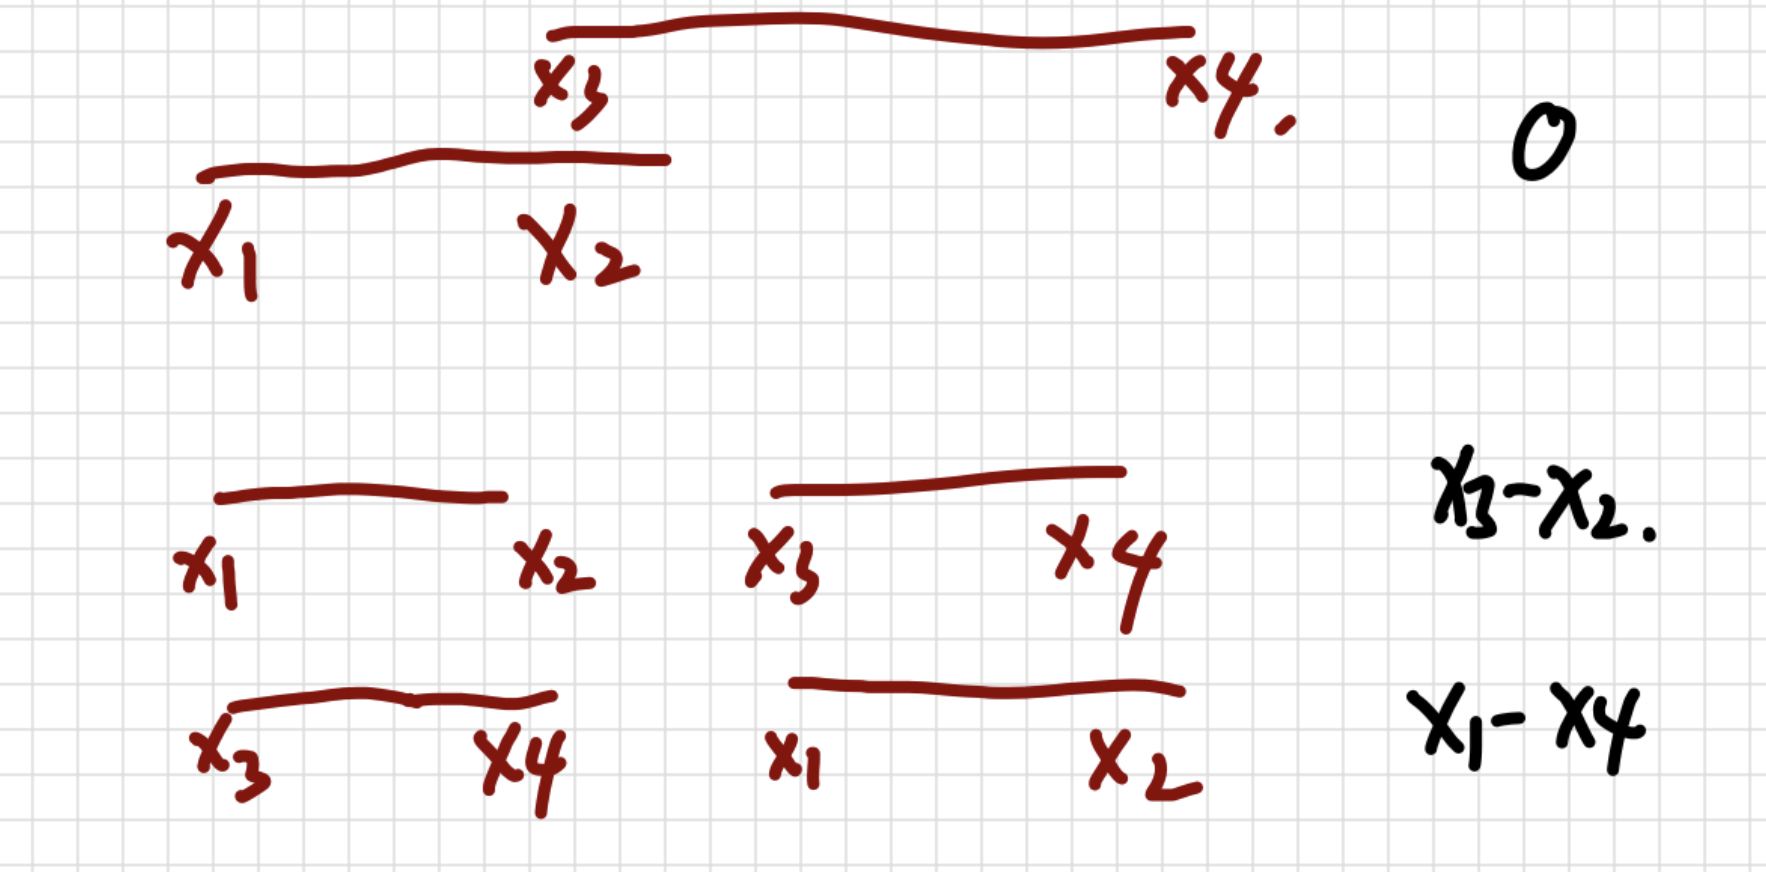 x3 x4. 0
x1 x2
x1 x2 x3 x4 x3-x2.
x3 x4 x1 x2 x1-x4